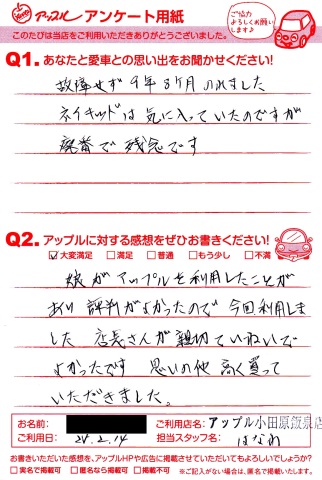 アップル アンケート用紙
ご協力
よろしくお願い
します♪
このたびは当店をご利用いただきありがとうございました。
Q1. あなたと愛車との思い出をお聞かせください!
故障せず9年8ヶ月のれました
ネイキッドは気に入っていたのですが
廃番で残念です
Q2. アップルに対する感想をぜひお書きください!
☑大変満足 □満足 □普通 □もう少し □不満
娘がアップルを利用したことが
あり評判がよかったので今回利用しま
した 店長さんが親切ていねいで
よかったです 思いの他高く買って
いただきました。
お名前:
ご利用店名:アップル小田原飯泉店
ご利用日: 24.2.14
担当スタッフ名: はなれ
お書きいただいた感想を、アップルHPや広告に掲載させていただいてもよろしいでしょうか?
□実名で掲載可 □匿名なら掲載可 □掲載不可 ※ご記入がない場合は、匿名で掲載いたします。